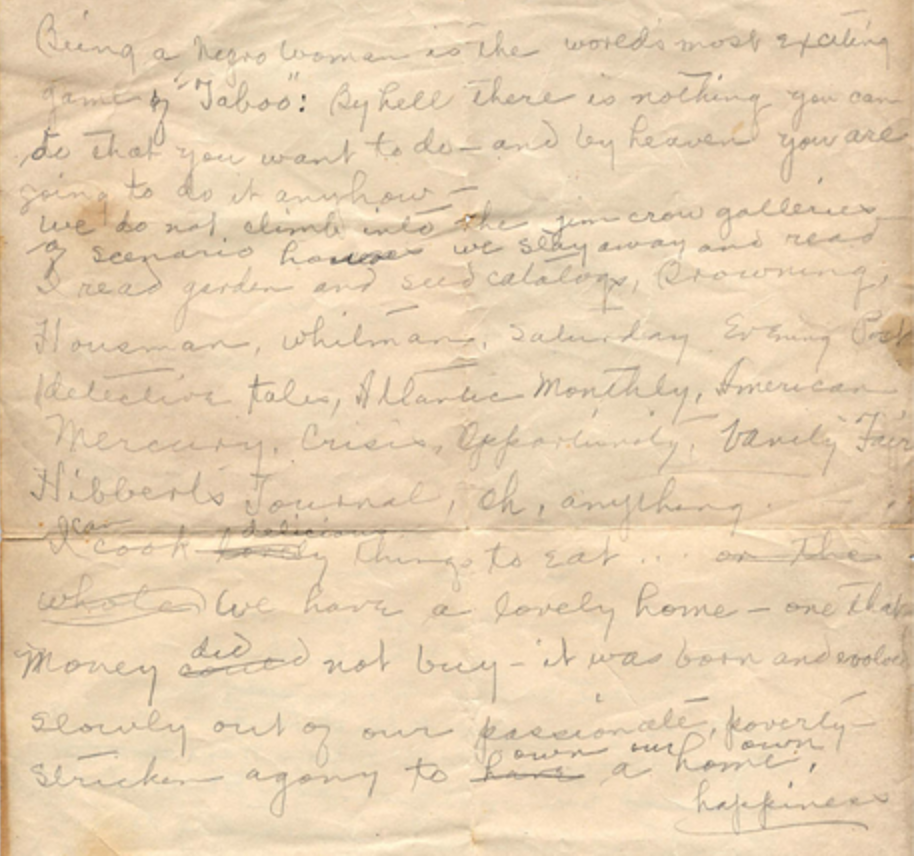 Being a Negro Woman is the world's most exciting
game of "Taboo": By hell there is nothing you can
do that you want to do – and by heaven you are
going to do it anyhow –
We do not climb into the jim crow galleries
of scenario houses we stay away and read
I read garden and seed catalogs, Browning,
Housman, Whitman, Saturday Evening Post
detective tales, Atlantic Monthly, American
Mercury, Crisis, Opportunity, Vanity Fair
Hibberts Journal, oh, anything.
I can cook delicious things to eat . . . on the
whole We have a lovely home – one that
money did not buy – it was born and evolved
slowly out of our passionate, poverty-
stricken agony to own our own home.
happiness